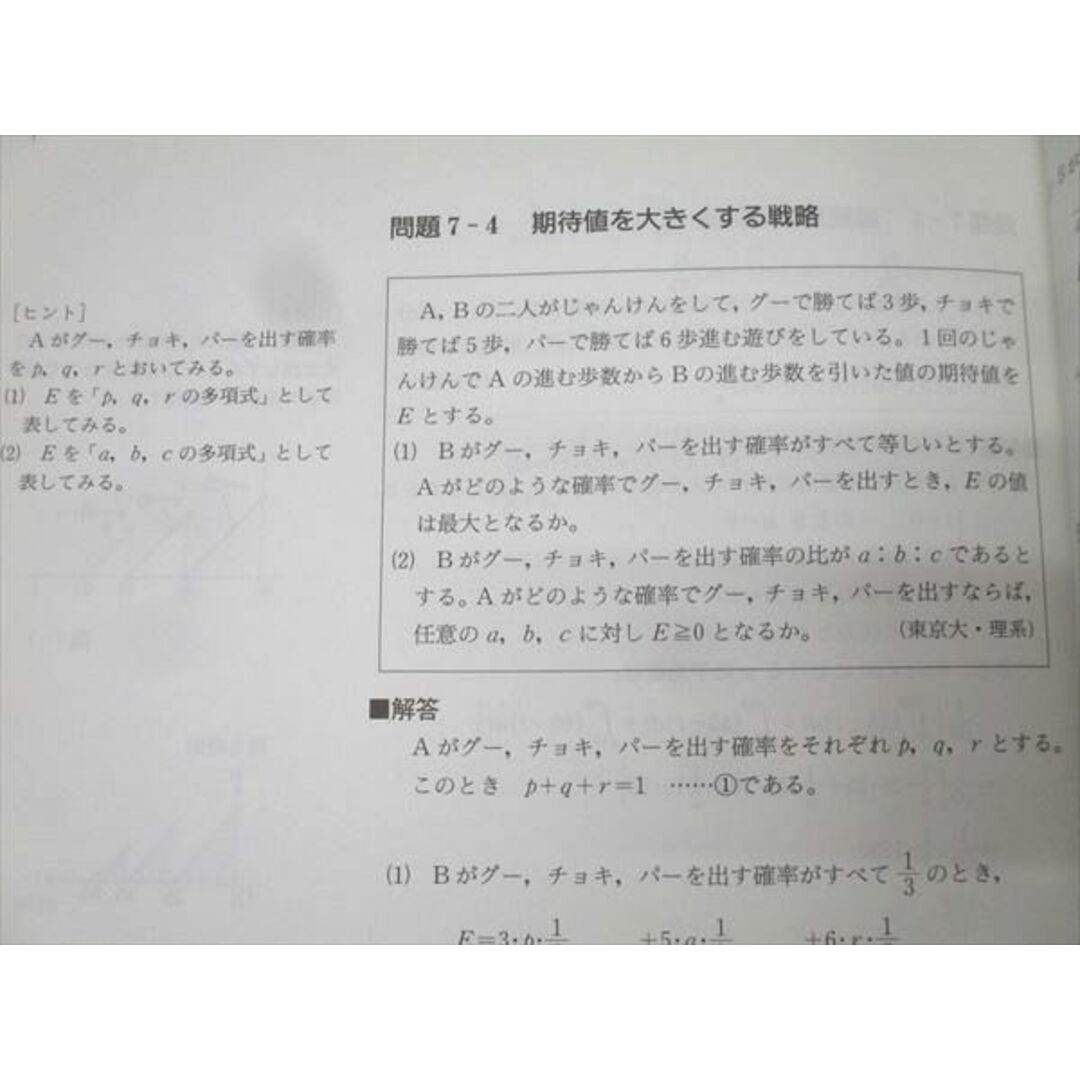 問題7-4 期待値を大きくする戦略
[ヒント]
Aがグー,チョキ,パーを出す確率
をp, q, rとおいてみる。
(1) Eを「p, q, rの多項式」として
表してみる。
(2) Eを「a, b, cの多項式」として
表してみる。
A, Bの二人がじゃんけんをして,グーで勝てば3歩,チョキで
勝てば5歩,パーで勝てば6歩進む遊びをしている。1回のじゃ
んけんでAの進む歩数からBの進む歩数を引いた値の期待値を
Eとする。
(1) Bがグー,チョキ,パーを出す確率がすべて等しいとする。
Aがどのような確率でグー,チョキ,パーを出すとき,Eの値
は最大となるか。
(2) Bがグー,チョキ,パーを出す確率の比がa:b:cであると
する。Aがどのような確率でグー,チョキ,パーを出すならば,
任意のa, b, cに対しE≧0となるか。 (東京大・理系)
■解答
Aがグー,チョキ,パーを出す確率をそれぞれp, q, rとする。
このとき p+q+r=1 ……①である。
(1) Bがグー,チョキ,パーを出す確率がすべて1/3のとき,